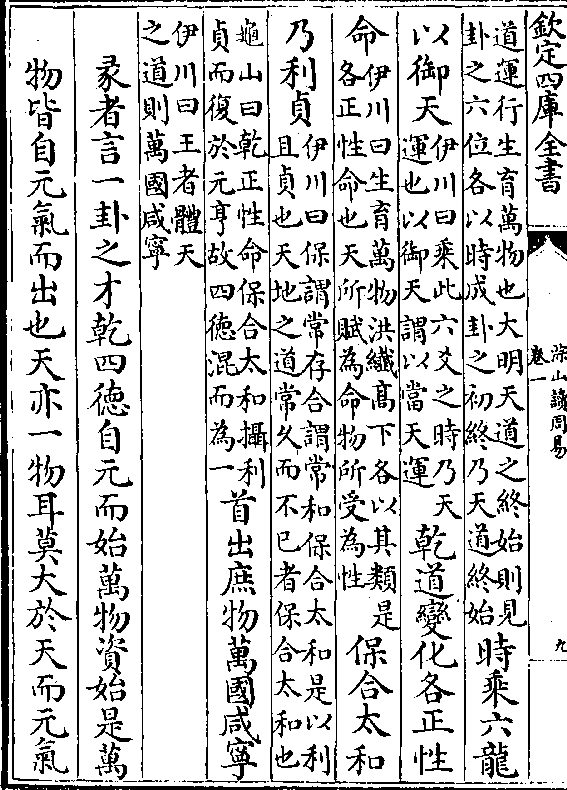 欽定四庫全書
道運行生育萬物也大明天道之終始則見
卦之六位各以時成卦之初終乃天道終始
時乘六龍
以御天
伊川曰乘此六爻之時乃天
運也以御天謂以當天運
乾道變化各正性
命
伊川曰生育萬物洪纖髙下各以其類是
各正性命也天所賦為命物所受為性
保合太和
乃利貞
伊川曰保謂常存合謂常和保合太和是以利
且貞也天地之道常久而不已者保合太和也
龜山曰乾正性命保合太和攝利
貞而復於元亨故四徳混而為一
首出庶物萬國咸寧
伊川曰王者體天
之道則萬國咸寧
彖者言一卦之才乾四徳自元而始萬物資始是萬
物皆自元氣而出也天亦一物耳莫大於天而元氣
深山讀周易
卷一
九